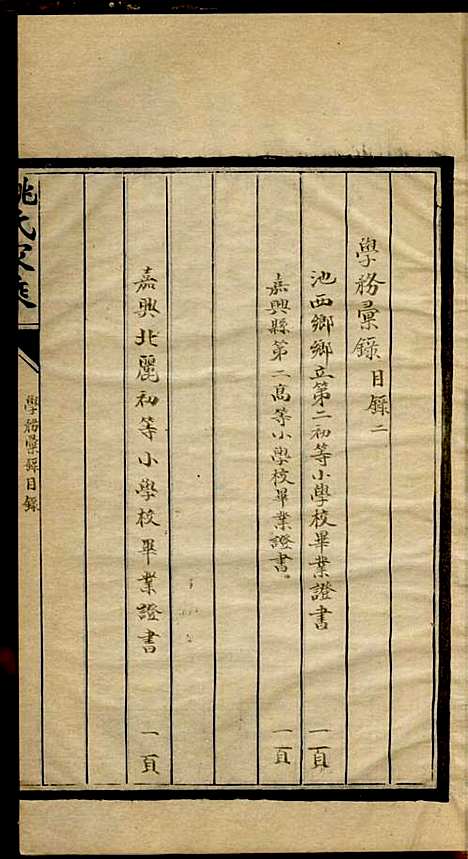 學務彙錄目錄二
池西鄉鄉立第二初等小學校畢業證書 一頁
嘉興縣第二高等小學校畢業證書。 一頁
嘉興北麗初等小學校畢業證書 一頁
姚氏家乘
學務彙錄目錄